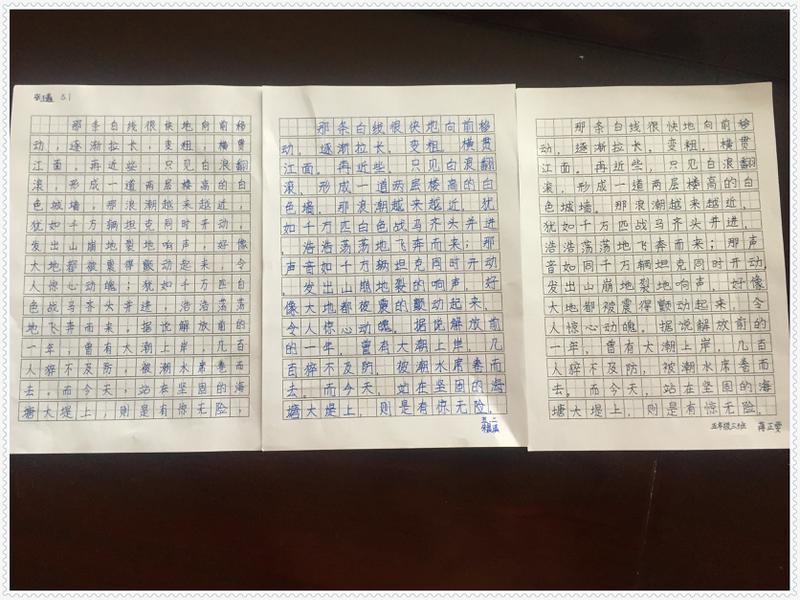 5.1
那条白线很快地向前移
动，逐渐拉长，变粗，横贯
江面。再近些，只见白浪翻
滚，形成一道两层楼高的白
色城墙。那浪潮越来越近，
犹如千万辆坦克同时开动，
发出山崩地裂地响声，好像
大地都被震得颤动起来，令
人惊心动魄；犹如千万匹白
色战马齐头并进，浩浩荡荡
地飞奔而来，据说解放前的
一年，曾有大潮上岸，几百
人猝不及防，被潮水席卷而
去。而今天，站在坚固的海
塘大堤上，则是有惊无险，
那条白线很快地向前移动
，逐渐拉长，变粗，横贯
江面。再近些，只见白浪翻
滚，形成一道两层楼高的白
色墙。那浪潮越来越近，犹
如千万匹白色战马齐头并进
，浩浩荡荡地飞奔而来；那
声音如千万辆坦克同时开动
，发出山崩地裂的响声，好
像大地都被震的颤动起来，
令人惊心动魄。据说解放前
的一年，曾有大潮上岸，几
百人猝不及防，被潮水席卷而
去。而今天，站在坚固的海
塘大堤上，则是有惊无险，
那条白线很快地向前移
动，逐渐拉长，变粗，横贯
江面。再近些，只见白浪翻
滚，形成一道两层楼高的白
色城墙。那浪潮越来越近，
犹如千万匹战马齐头并进，
浩浩荡荡地飞奔而来；那声
音如同千万辆坦克同时开动
，发出山崩地裂地响声，好像
大地都被震得颤动起来，令
人惊心动魄。据说解放前的
一年，曾有大潮上岸，几百
人猝不及防，被潮水席卷而
去。而今天，站在坚固的海
塘大堤上，则是有惊无险，
五年级三班 蒋正雯